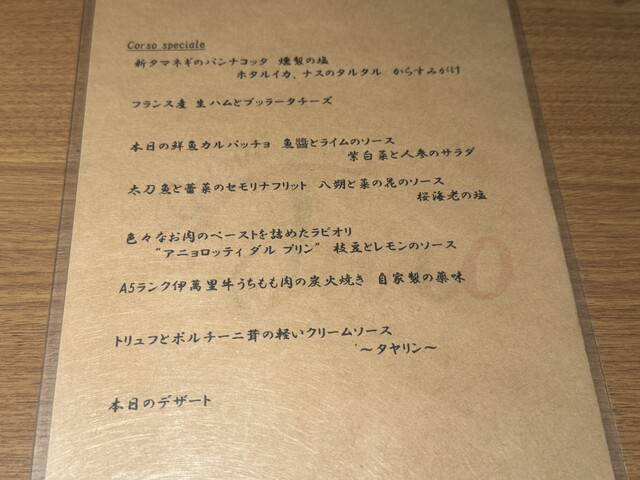 Corso speciale
新タマネギのパンナコッタ 燻製の塩
ホタルイカ、ナスのタルタル からすみがけ
フランス産 生ハムとブッラータチーズ
本日の鮮魚カルパッチョ 魚醬とライムのソース
紫白菜と人参のサラダ
太刀魚と蕾菜のセモリナフリット 八朔と菜の花のソース
桜海老の塩
色々なお肉のペーストを詰めたラビオリ
"アニョロッティ ダル プリン" 枝豆とレモンのソース
A5ランク伊萬里牛うちもも肉の炭火焼き 自家製の薬味
トリュフとポルチーニ茸の軽いクリームソース
～タヤリン～
本日のデザート